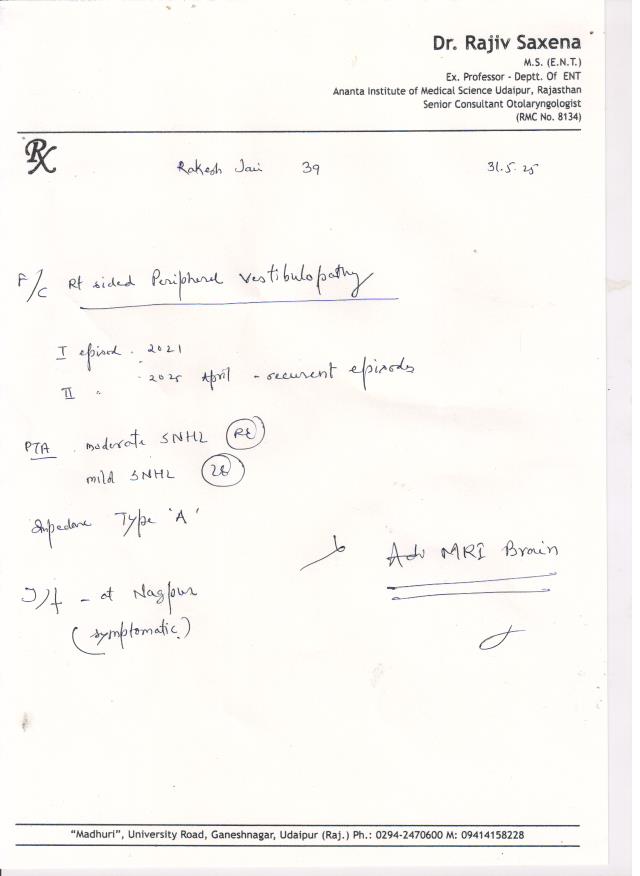 Dr. Rajiv Saxena
M.S. (E.N.T.)
Ex. Professor - Deptt. Of ENT
Ananta Institute of Medical Science Udaipur, Rajasthan
Senior Consultant Otolaryngologist
(RMC No. 8134)
Rx
Rakesh Jain 39 31.5.25
F/C Rt sided Peripheral Vestibulopathy
I episod . 2021
II " - 2025 April - recurent episods
PTA . moderate SNHL Rt
mild SNHL
Impedance Type 'A'
Adv MRI Brain
- at Nagpur
(symptomatic)
"Madhuri", University Road, Ganeshnagar, Udaipur (Raj.) Ph.: 0294-2470600 M: 09414158228